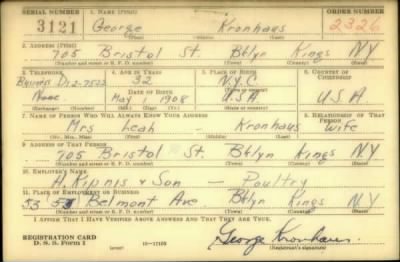 SERIAL NUMBER 1. NAME (Print) ORDER NUMBER
3121 George Kronhaus 2326
2. ADDRESS (Print)
705 Bristol St. Bklyn Kings NY
(Number and street or R. F. D. number) (Town) (County) (State)
3. TELEPHONE 4. AGE IN YEARS 5. PLACE OF BIRTH 6. COUNTRY OF CITIZENSHIP
32 N.Y.C.
DATE OF BIRTH
None May 1908 USA U.S.A.
(Exchange) (Number) (Mo.) (Day) (Yr.) (State or country)
7. NAME OF PERSON WHO WILL ALWAYS KNOW YOUR ADDRESS 8. RELATIONSHIP OF THAT PERSON
Mrs Leah - Kronhaus Wife
(Mr., Mrs., Miss) (First) (Middle) (Last)
9. ADDRESS OF THAT PERSON
705 Bristol St. Bklyn Kings NY
(Number and street or R. F. D. number) (Town) (County) (State)
10. EMPLOYER'S NAME
H. Kipnis & Son - Poultry
11. PLACE OF EMPLOYMENT OR BUSINESS
Belmont Ave. Bklyn Kings NY
(Number and street or R. F. D. number) (Town) (County) (State)
I AFFIRM THAT I HAVE VERIFIED ABOVE ANSWERS AND THAT THEY ARE TRUE.
REGISTRATION CARD
D. S. S. Form 1 George Kronhaus
(Registrant's signature)